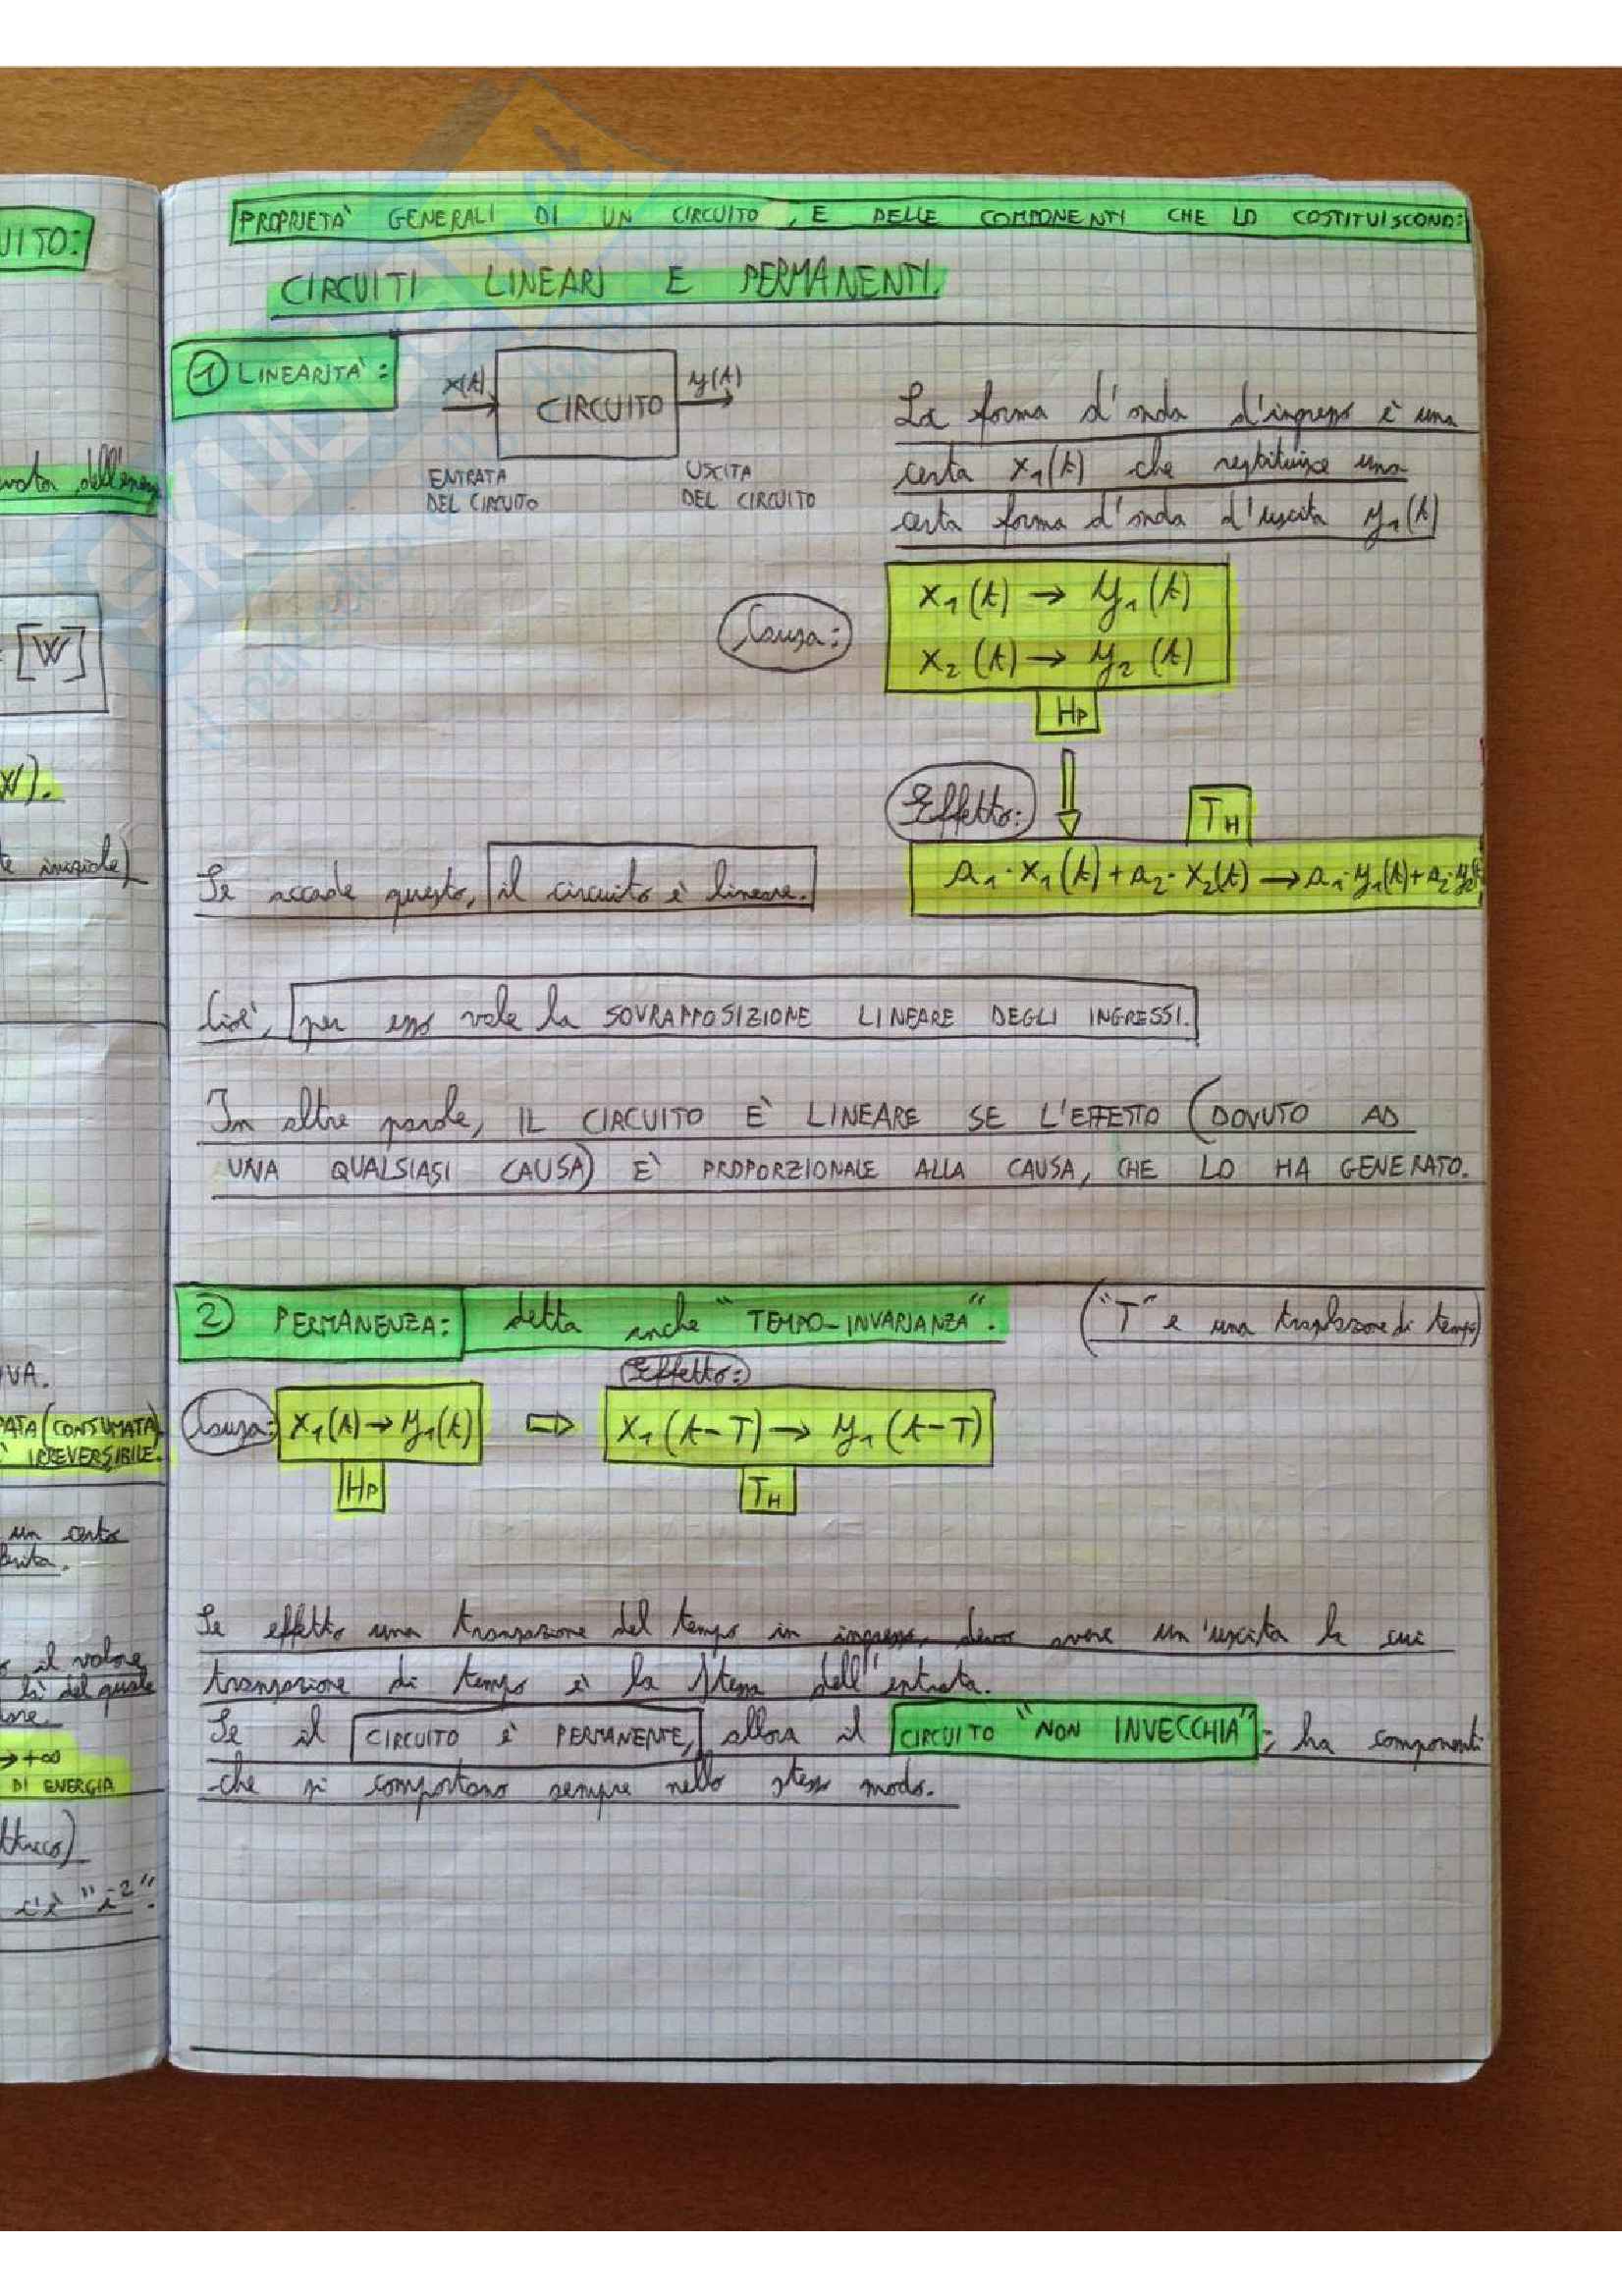 UITO:
vata dell'energ
[W]
W).
te iniziale)
UVA.
PATA (CONSUMATA)
È IRREVERSIBILE.
un certo
o il valore
là del quale
→+∞
DI ENERGIA
ttrico)
c'è "i²".
PROPRIETA' GENERALI DI UN CIRCUITO, E DELLE COMPONENTI CHE LO COSTITUISCONO:
CIRCUITI LINEARI E PERMANENTI.
① LINEARITA':
x(t) CIRCUITO y(t)
ENTRATA DEL CIRCUITO
USCITA DEL CIRCUITO
La forma d'onda d'ingresso è una
certa x₁(t) che restituisce una
certa forma d'onda d'uscita y₁(t)
Causa:
x₁(t) → y₁(t)
x₂(t) → y₂(t)
Hp
Effetto:
TH
a₁·x₁(t)+a₂·x₂(t)→a₁·y₁(t)+a₂·y₂(t)
Se accade questo, il circuito è lineare.
Cioè, per esso vale la SOVRAPPOSIZIONE LINEARE DEGLI INGRESSI.
In altre parole, IL CIRCUITO E' LINEARE SE L'EFFETTO (DOVUTO AD
UNA QUALSIASI CAUSA) E' PROPORZIONALE ALLA CAUSA, CHE LO HA GENERATO.
② PERMANENZA: detta anche "TEMPO-INVARIANZA". ("T" è una traslazione di tempo)
Effetto:
Causa: x₁(t)→y₁(t) ⇨ x₁(t-T)→y₁(t-T)
Hp TH
Se effetto una transazione del tempo in ingresso, devo avere un'uscita la cui
transazione di tempo è la stessa dell'entrata.
Se il CIRCUITO è PERMANENTE, allora il CIRCUITO "NON INVECCHIA"; ha componenti
che si comportano sempre nello stesso modo.